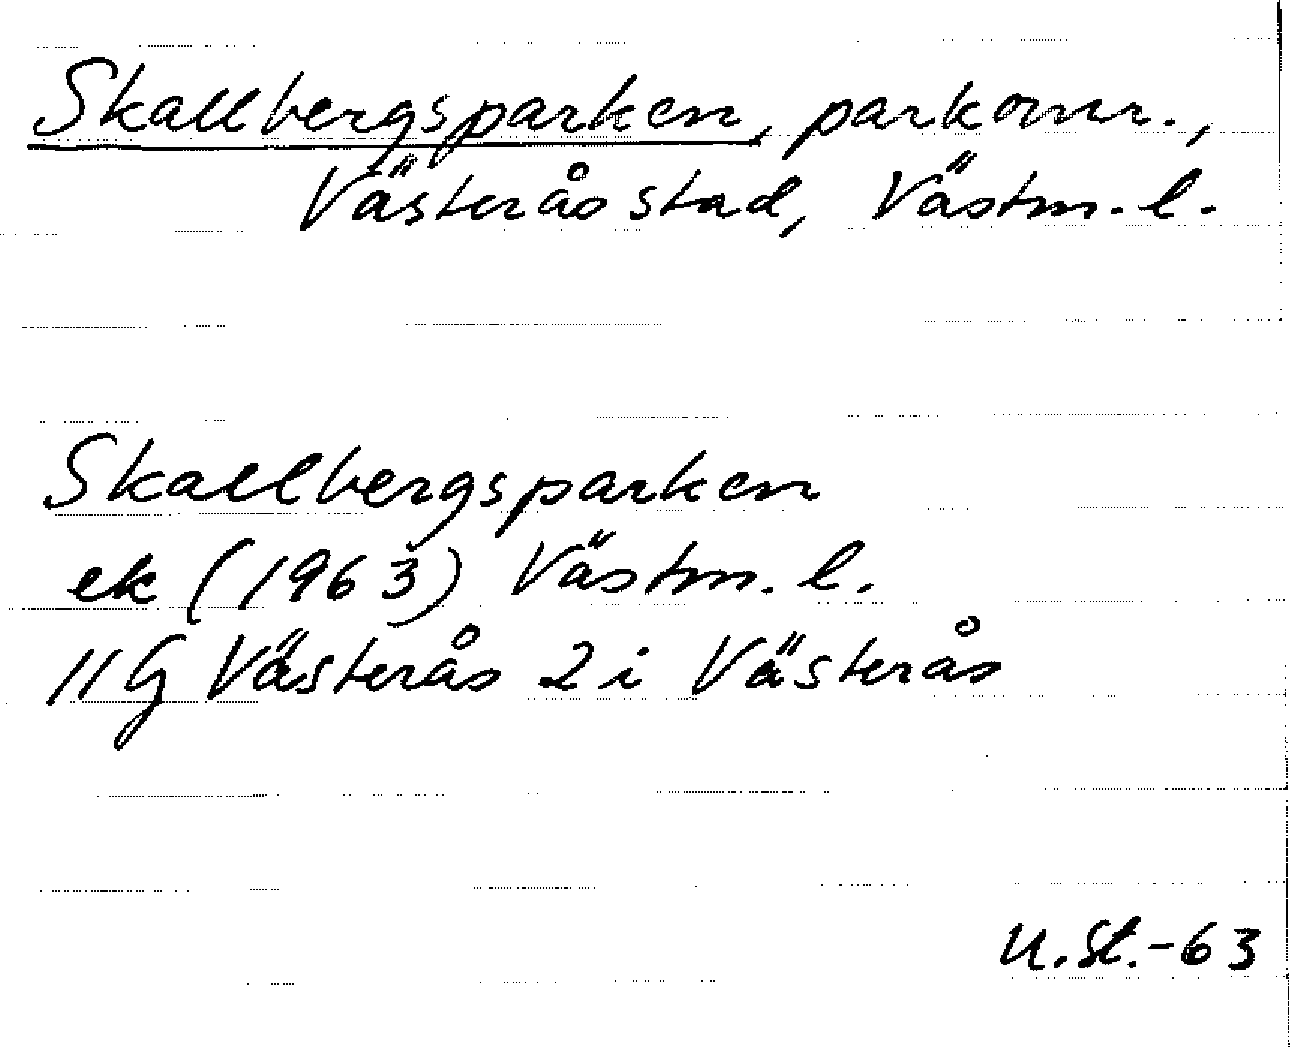 Skallbergsparken, parkomr.,
Västerås stad, Västm. l.
Skallbergsparken
ek (1963) Västm. l.
11G Västerås 2i Västerås
U.St.-63